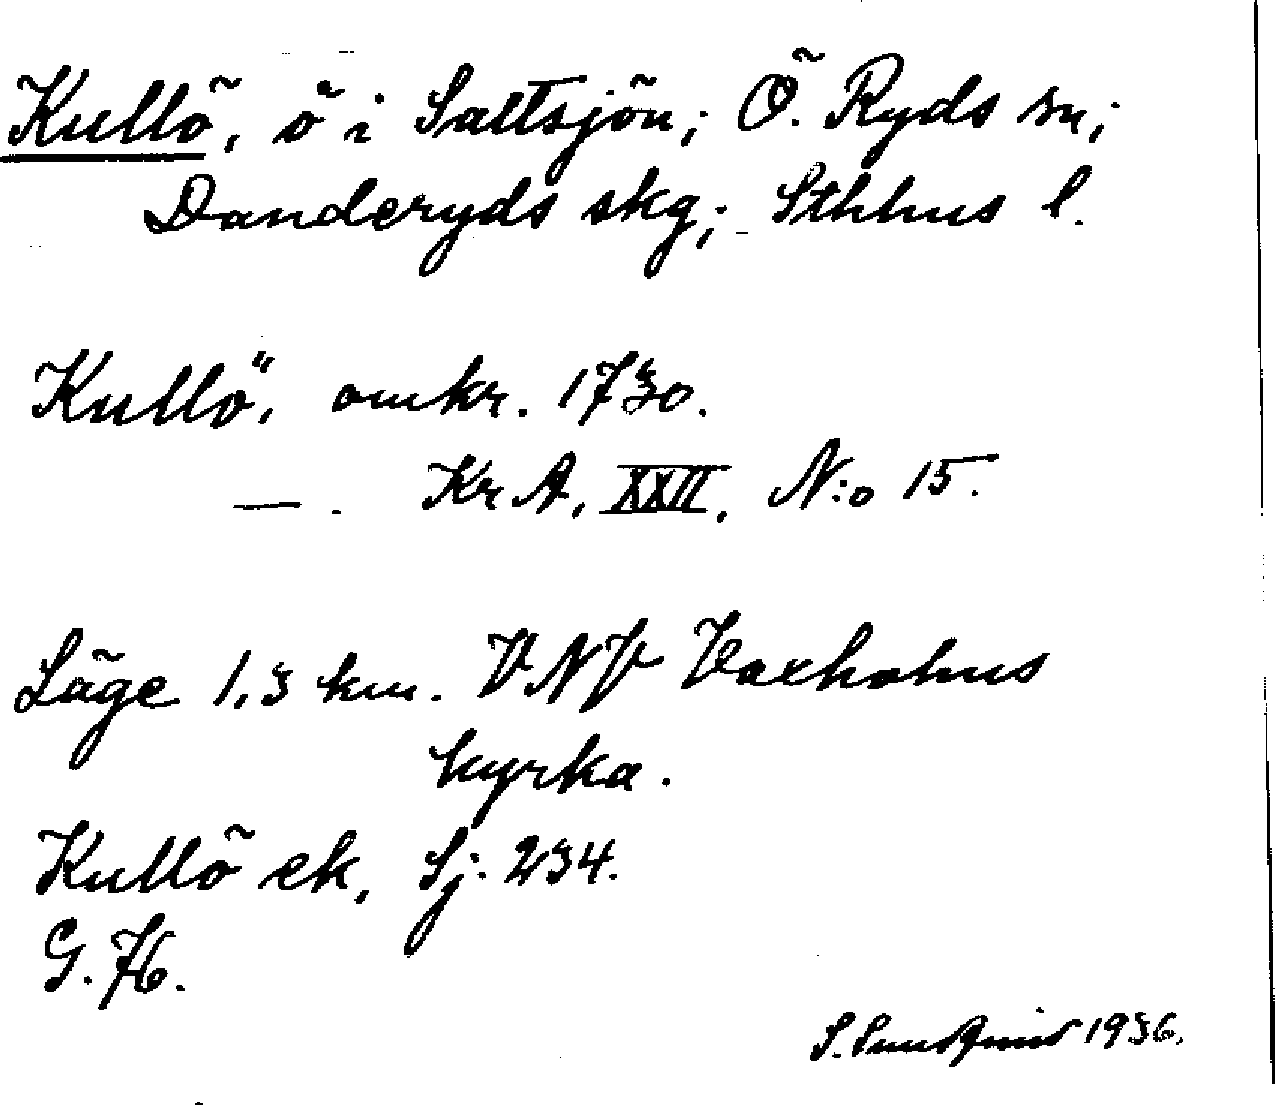 Kullö, ö i Saltsjön; Ö. Ryds sn;
Danderyds skg; Sthlms l.
Kullö, omkr. 1730.
— . Kr A, XXII, N:o 15.
Läge 1,3 km. VNV Vaxholms
kyrka.
Kullö ek, Sj. 234.
G. 76.
S. Sundqvist 1936.